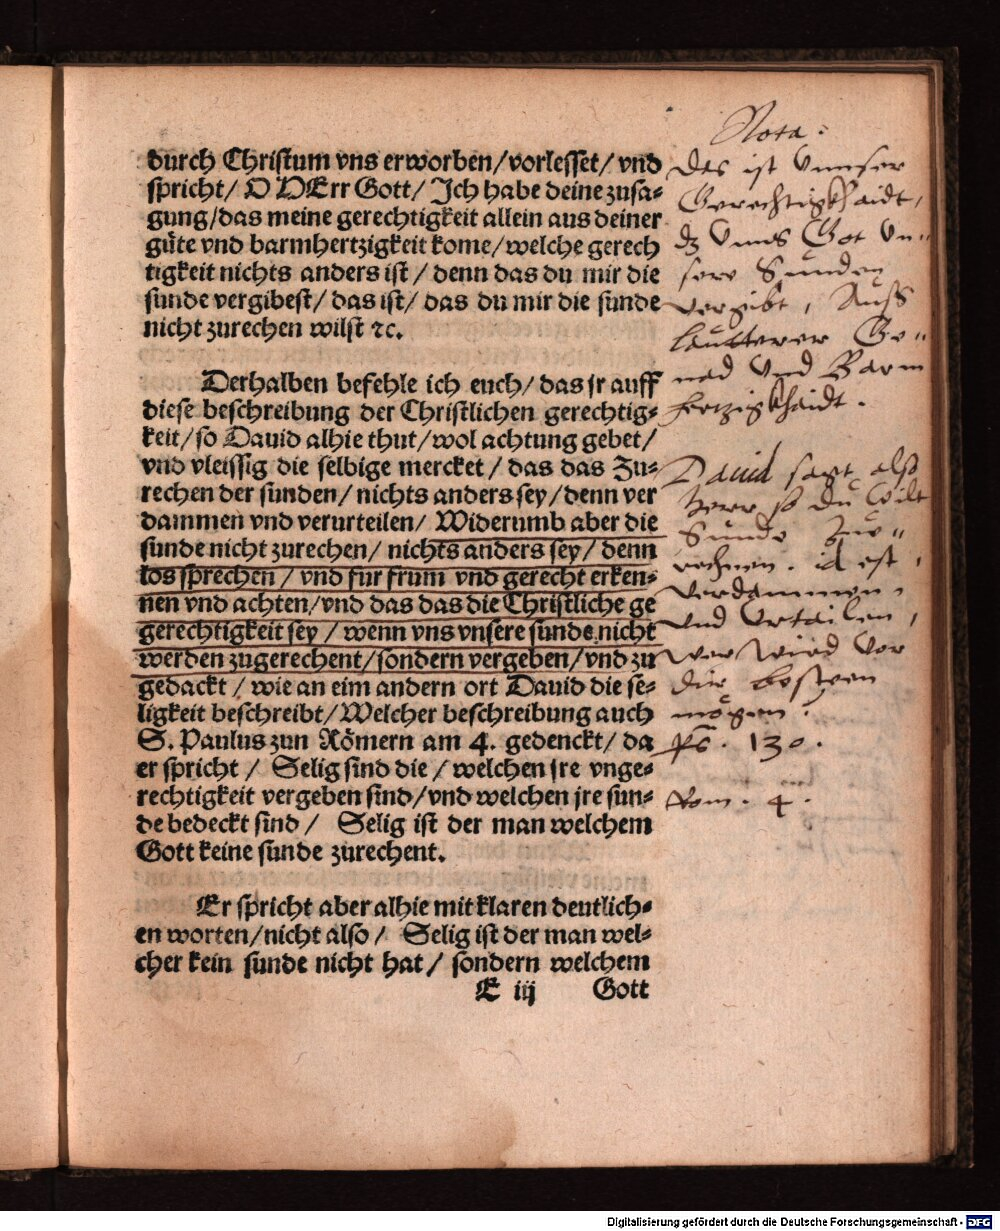 durch Christum vns erworben/vorlesset/vnd
spricht/ O HErr Gott/ Ich habe deine zusa=
gung/das meine gerechtigkeit allein aus deiner
güte vnd barmhertzigkeit kome/welche gerech
tigkeit nichts anders ist/ denn das du mir die
sunde vergibest/ das ist/ das du mir die sunde
nicht zurechen wilst ꝛc.
Derhalben befehle ich euch/ das jr auff
diese beschreibung der Christlichen gerechtig=
keit/so Dauid alhie thut/wol achtung gebet/
vnd vleissig die selbige mercket/ das das Zu=
rechen der sunden/ nichts anders sey/denn ver
dammen vnd verurteilen/ Widerumb aber die
sunde nicht zurechen/ nichts anders sey/ denn
los sprechen/ vnd fur frum vnd gerecht erken=
nen vnd achten/vnd das das die Christliche ge
gerechtigkeit sey/ wenn vns vnsere sunde nicht
werden zugerechent/sondern vergeben/vnd zu
gedackt/ wie an eim andern ort Dauid die se=
ligkeit beschreibt/Welcher beschreibung auch
S. Paulus zun Römern am 4. gedenckt/ da
er spricht/ Selig sind die/ welchen jre vnge=
rechtigkeit vergeben sind/vnd welchen jre sun=
de bedeckt sind/ Selig ist der man welchem
Gott keine sunde zurechent.
Er spricht aber alhie mit klaren deutlich=
en worten/nicht also/ Selig ist der man wel=
cher kein sunde nicht hat/ sondern welchem
E iij Gott
Nota:
Das ist Vnnser
Gerechtigkhaidt,
dz Vnns Got Vn=
sere Sunden
vergibt, Auss
lautterer Ge=
nad Vnd Barm
hertzigkhaidt.
Dauid sagt also
Herr so du Wilt
Sunde Zue=
rechnen. id est,
verdammen,
vnd Vrtailen,
wer Wird Vor
dir besteen
mögen?
Ps. 130.
Rom. 4.
Digitalisierung gefördert durch die Deutsche Forschungsgemeinschaft - DFG